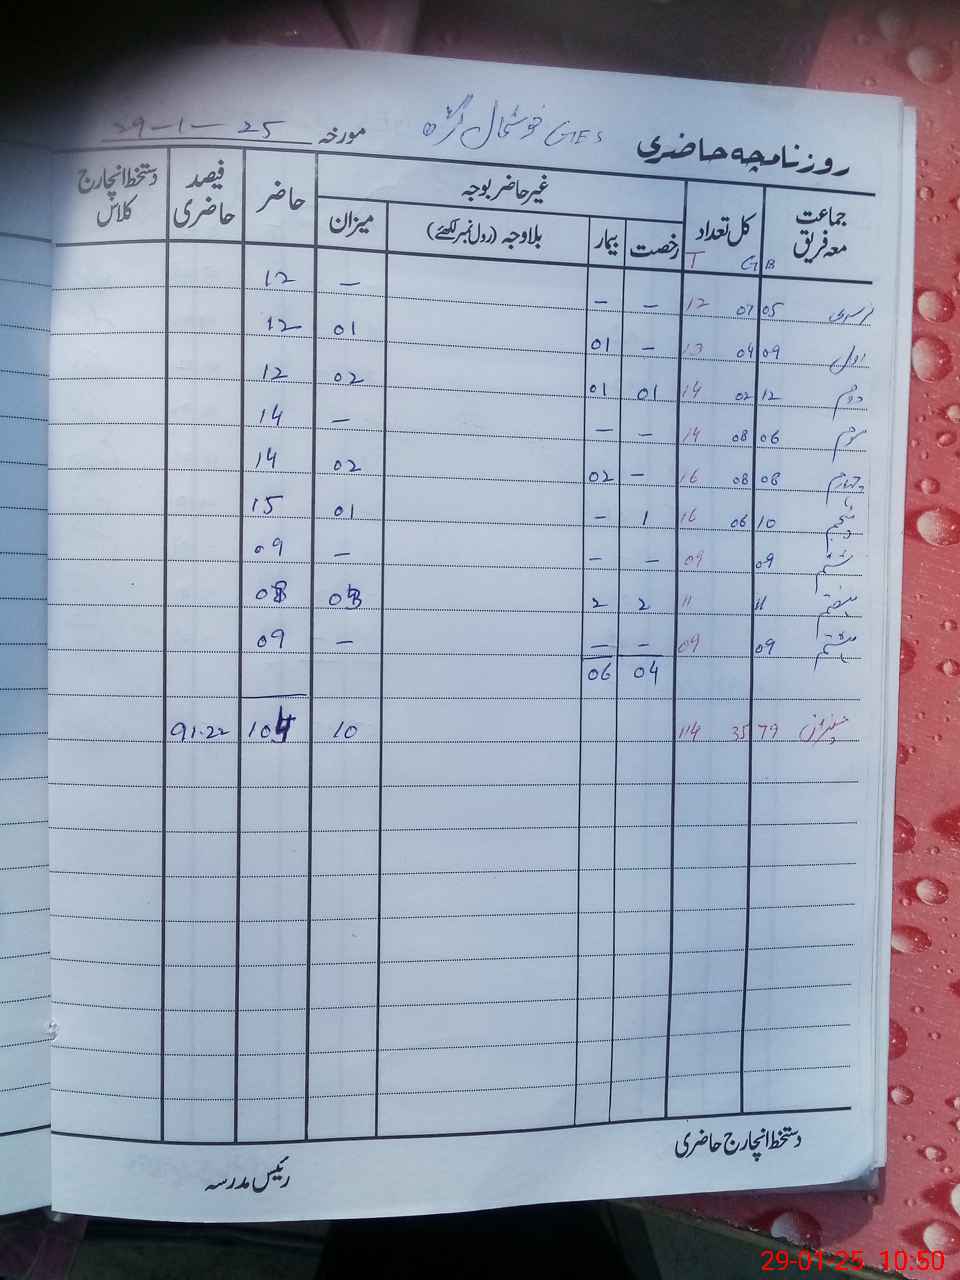 روزنامچہ حاضری GES خوشحال گڑھ مورخہ 29-1-25
جماعت معہ فریق کل تعداد غیر حاضر بوجہ حاضر فیصد حاضری دستخط انچارج کلاس
B G T رخصت بیمار بلاوجہ (رول نمبر لکھئے) میزان
نرسری 05 07 12 — — — 12
اول 09 04 13 — 01 01 12
دوم 12 02 14 01 01 02 12
سوم 06 08 14 — — — 14
چہارم 08 08 16 — 02 02 14
پنجم 10 06 16 1 — 01 15
ششم 09 09 — — — 09
ہفتم 11 11 2 2 08
ہشتم 09 09 — — — 09
04 06
79 35 114 10 104 91.22
دستخط انچارج حاضری
رئیس مدرسہ
29-01-25 10:50